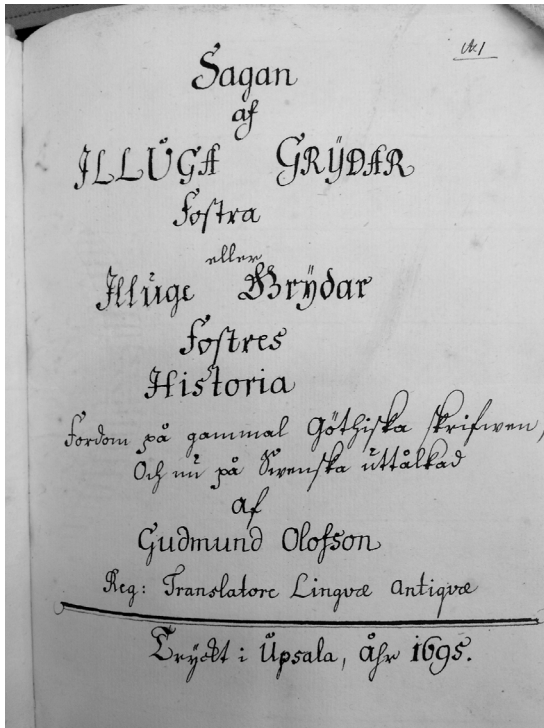 № 1
Sagan
af
ILLŮGA GRŸÐAR
Fostra
eller
Illůge Grÿdar
Fostres
Historia
Fordom på gammal Göthiska skrifwen,
Och nů på Swenska ůttålkad
af
Gudmund Olofson
Reg: Translatore Lingvæ Antiqvæ
Tryckt i Ůpsala, Åhr 1695.